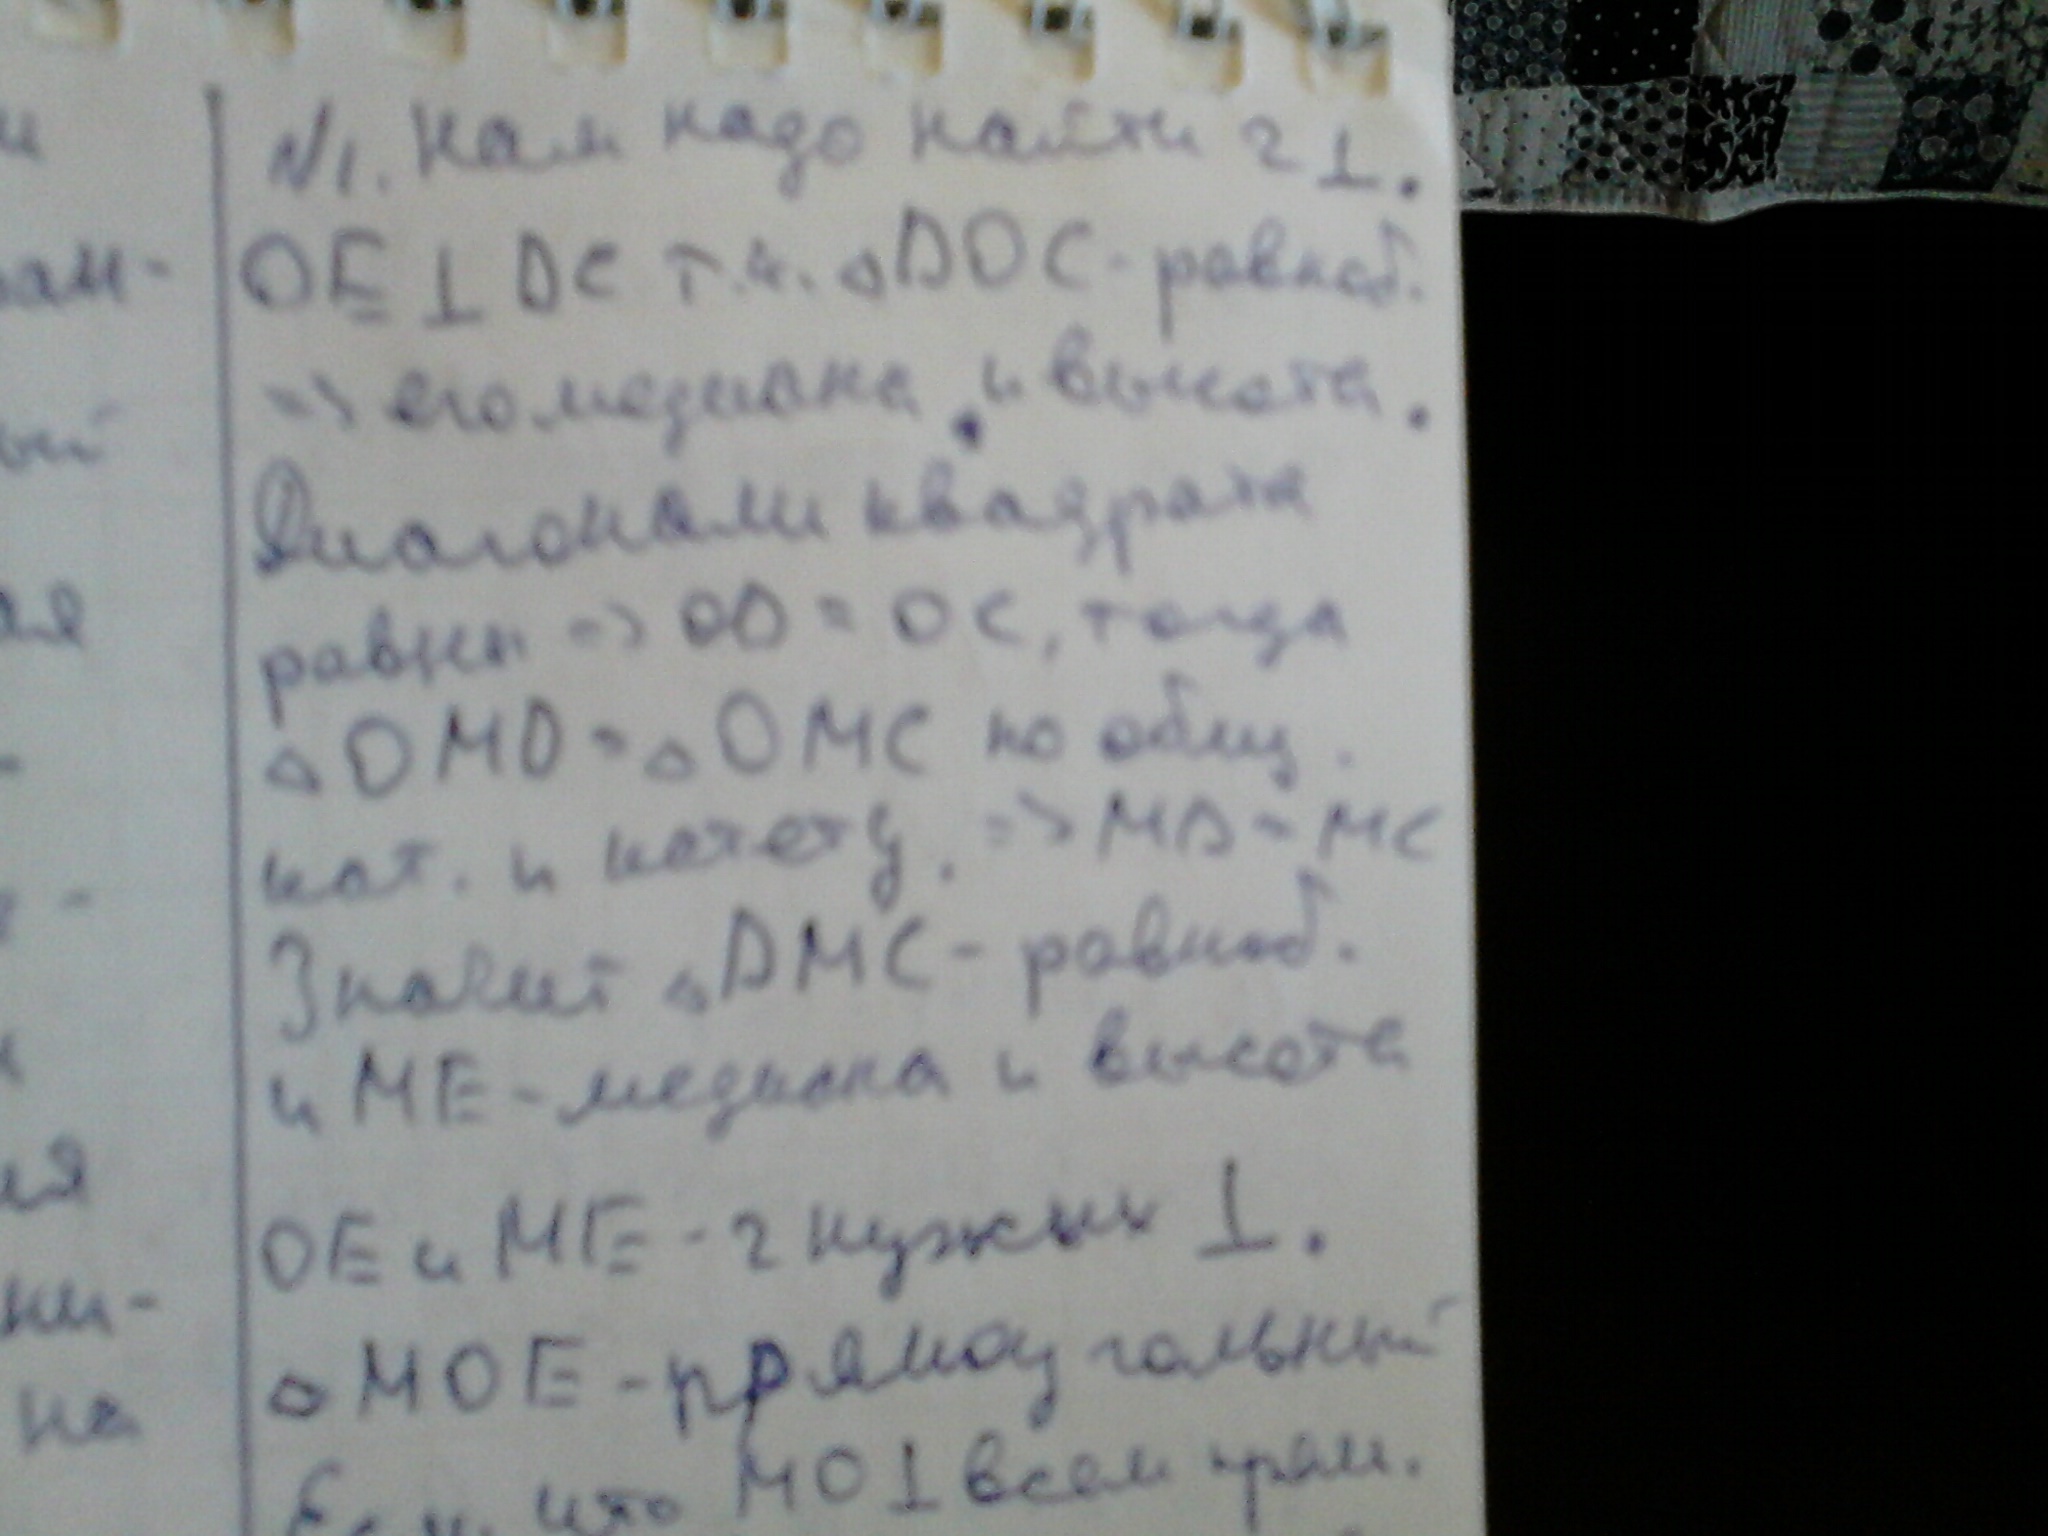 и
N1. Нам надо найти 2 ⊥.
ам-
OE ⊥ DC т.к. △DOC - равноб.
=> его медиана и высота.
ый
Диагонали квадрата
ая
равны => OD = OC, тогда
△OMD = △OMC по общ.
кат. и катету. => MD = MC
Значит △DMC - равноб.
и ME - медиана и высота
ия
OE и ME - 2 нужных ⊥.
ни-
△MOE - прямоугольный
на
Если, что MO ⊥ всем прям.